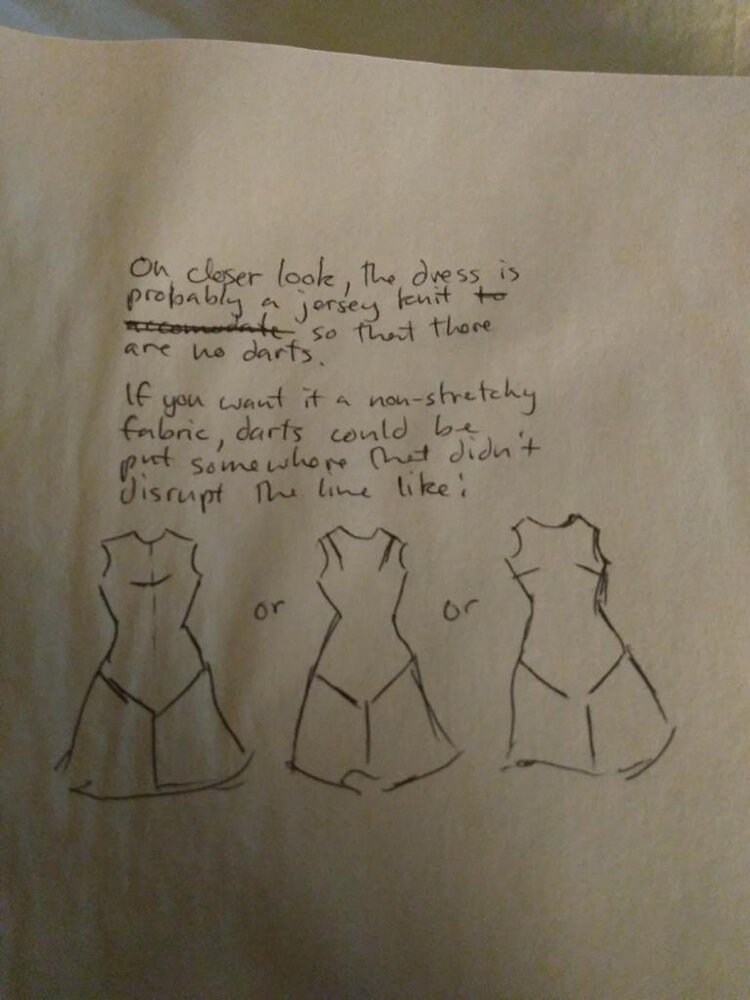 On closer look, the dress is
probably a jersey knit to
accomodate so that there
are no darts.
If you want it a non-stretchy
fabric, darts could be
put somewhere that didn't
disrupt the line like:
or
or